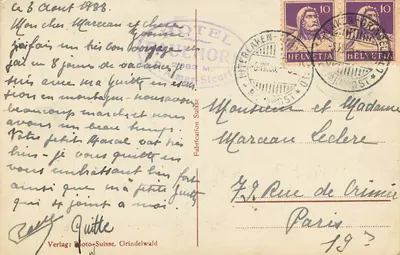 ce 3 Août 1933.
Mon cher Marceau et chère
Yvonne
j'ai fait un très bon voyage et
j'ai eu 8 jours de vacances je
suis avec ma Guitte en
en montagne. nous avons
beaucoup marché et nous
avons un beau temps.
Votre petite Marcel va très
bien. je vous quitte en
vous embrassant bien fort
ainsi que ma petite Guitte
qui se joint à moi.
Guitte
HOTEL
10 10
HELVETIA HELVETIA
INTERLAKEN
Fabrication Suisse
Monsieur et Madame
Marceau Leclere
79 Rue de Crimée
Paris
19e
Verlag: Photo-Suisse, Grindelwald